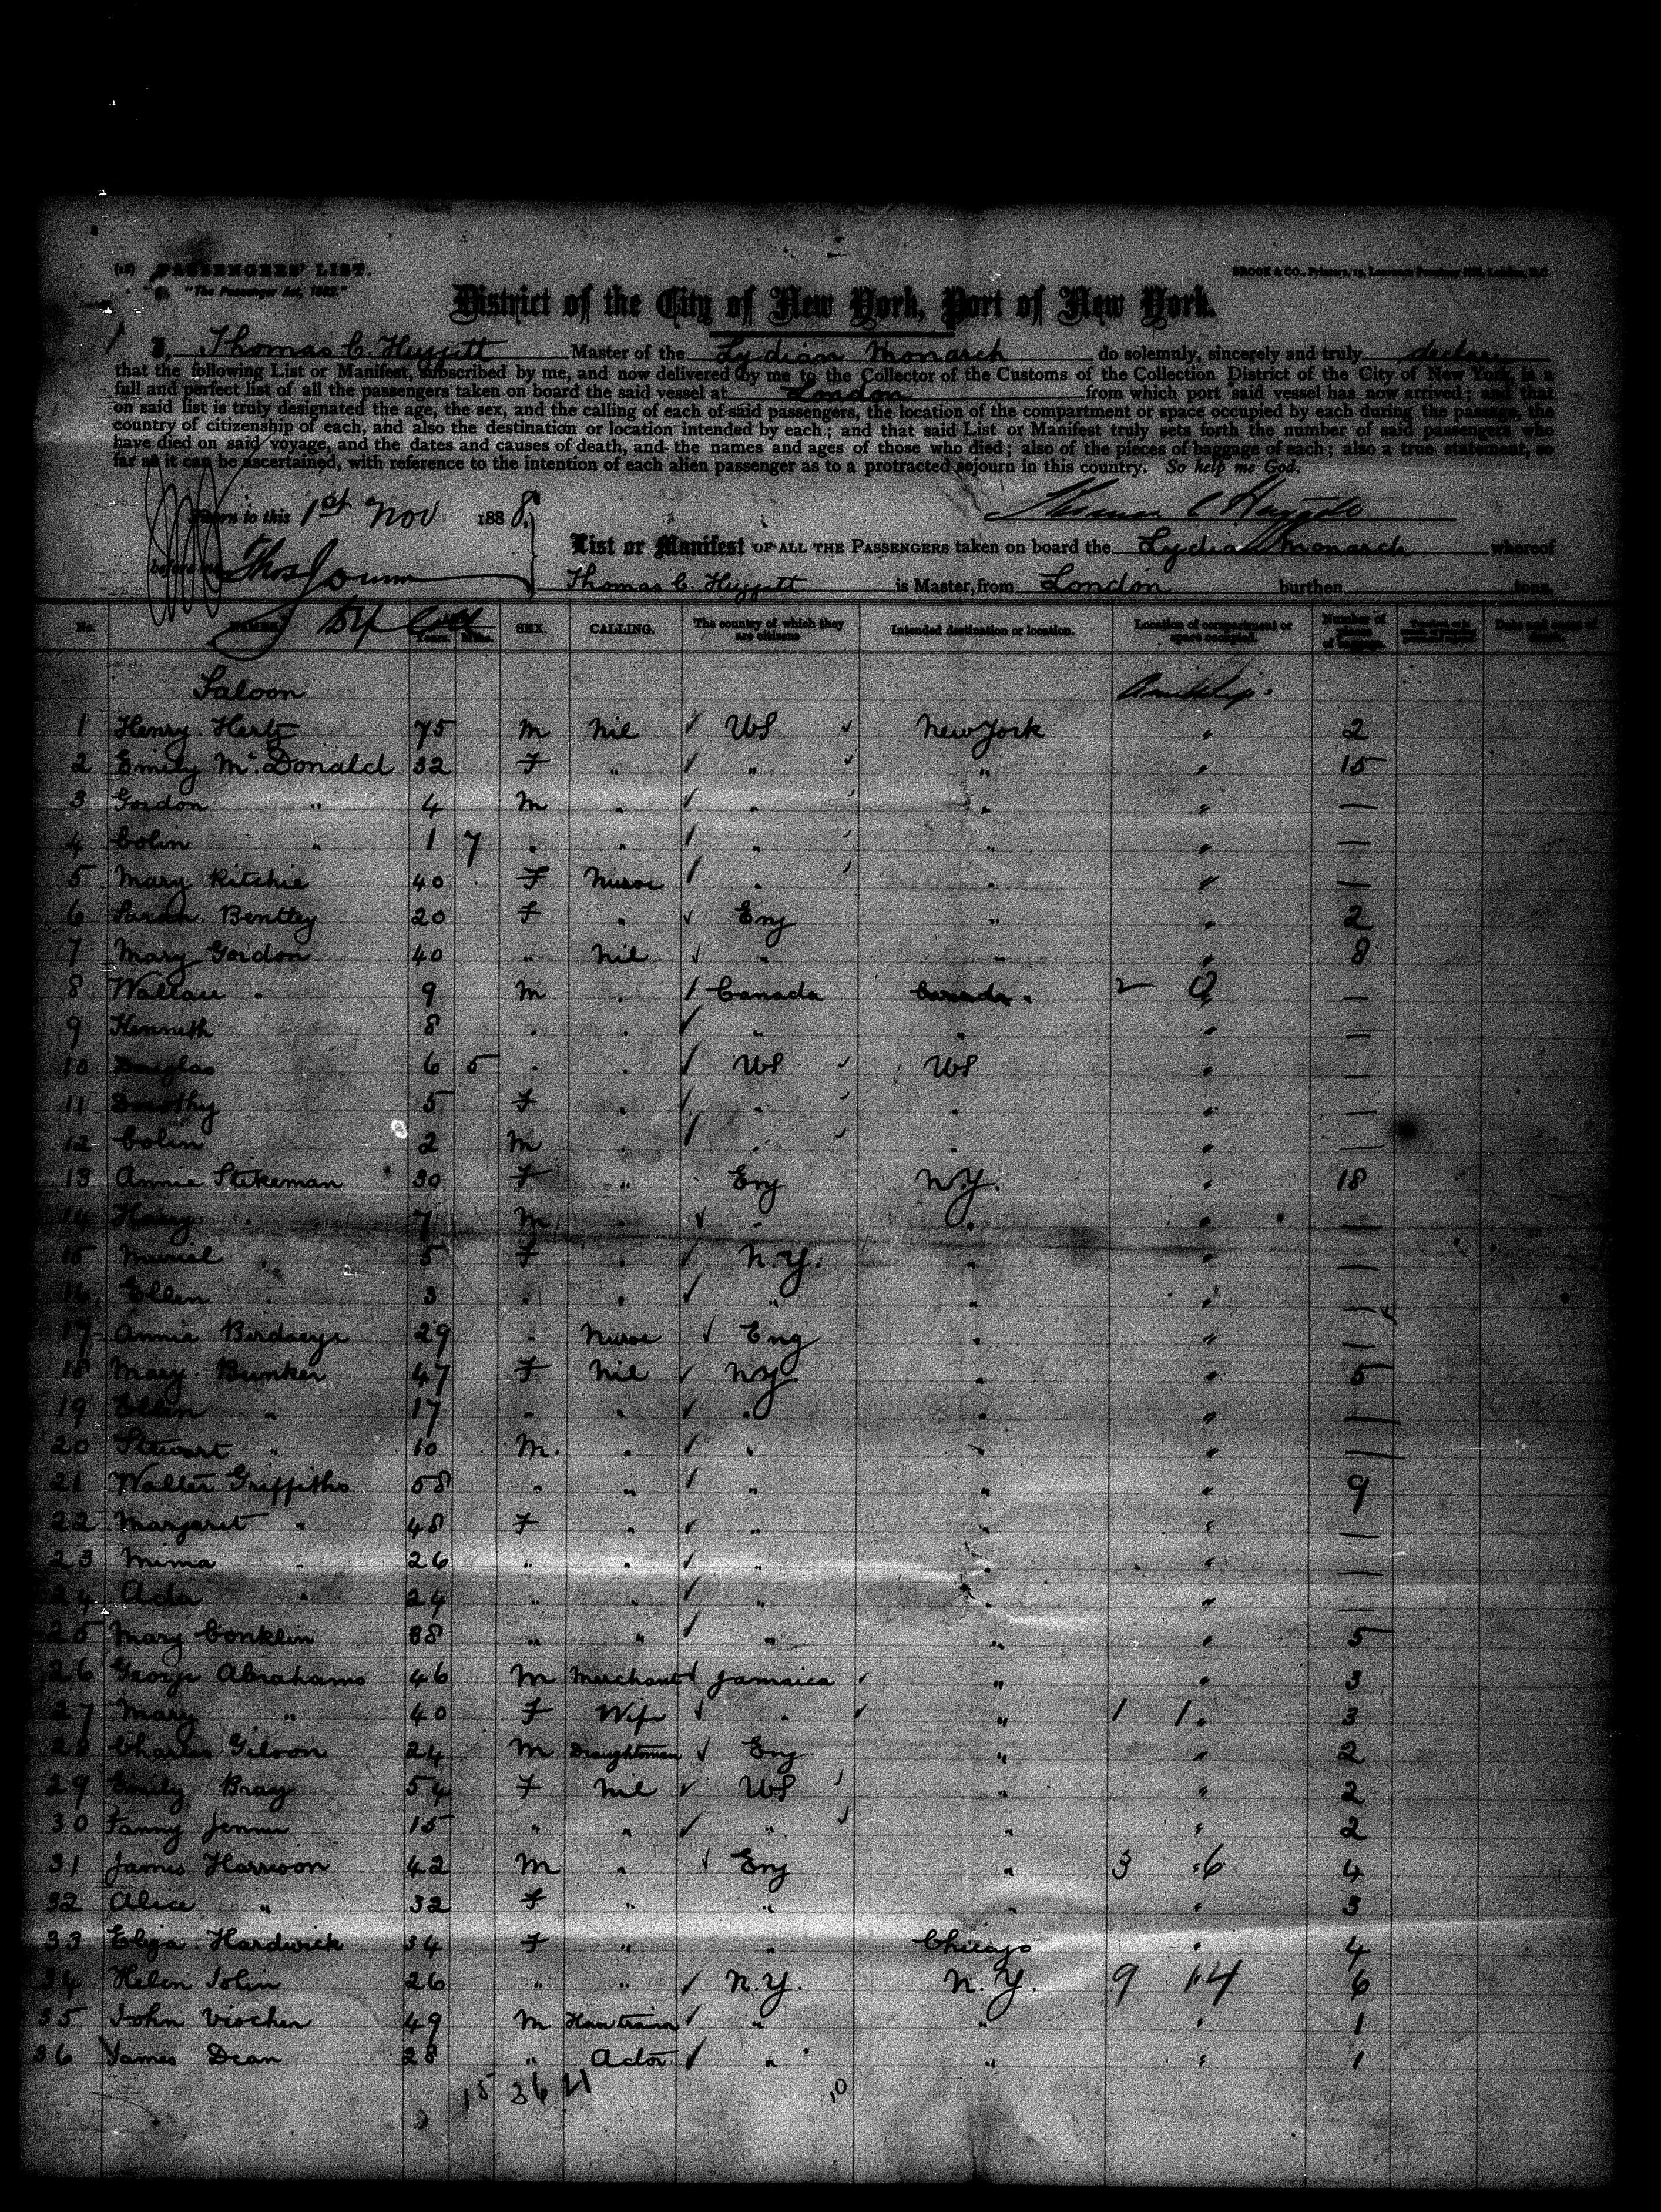 PASSENGERS' LIST.
"The Passenger Act, 1882."
BROOK & CO., Printers, London, E.C.
District of the City of New York, Port of New York.
I, Thomas C. Huggett Master of the Lydian Monarch do solemnly, sincerely and truly declare
that the following List or Manifest, subscribed by me, and now delivered by me to the Collector of the Customs of the Collection District of the City of New York, is a
full and perfect list of all the passengers taken on board the said vessel at London from which port said vessel has now arrived; and that
on said list is truly designated the age, the sex, and the calling of each of said passengers, the location of the compartment or space occupied by each during the passage, the
country of citizenship of each, and also the destination or location intended by each; and that said List or Manifest truly sets forth the number of said passengers who
have died on said voyage, and the dates and causes of death, and the names and ages of those who died; also of the pieces of baggage of each; also a true statement, so
far as it can be ascertained, with reference to the intention of each alien passenger as to a protracted sojourn in this country. So help me God.
Sworn to this 1st Nov 1888. Thomas C Huggett
before me
List or Manifest OF ALL THE PASSENGERS taken on board the Lydian Monarch whereof
Thomas C. Huggett is Master, from London burthen tons.
No. NAMES. Years. Mths. SEX. CALLING. The country of which they are citizens Intended destination or location. Location of compartment or space occupied. Number of pieces of baggage. Date and cause of death.
Saloon Amidship.
1 Henry Hertz 75 M Nil US New York " 2
2 Emily McDonald 32 F " " " " 15
3 Gordon " 4 M " " " " —
4 Colin " 1 7 " " " " " —
5 Mary Ritchie 40 F Nurse " " " —
6 Sarah Bentley 20 F " Eng " " 2
7 Mary Gordon 40 " Nil " " " 8
8 Wallace " 9 M " Canada Canada " 2 0 —
9 Kenneth 8 " " " " " —
10 Douglas 6 5 " " US US " —
11 Dorothy 5 F " " " " —
12 Colin 2 M " " " " —
13 Annie Stikeman 30 F " Eng N.Y. " 18
14 Harry " 7 M " " " " —
15 Muriel " 5 F " N.Y. " " —
16 Ellen 3 " " " " " —
17 Annie Birdseye 29 " Nurse Eng " " —
18 Mary Bunker 47 F Nil NY " " 5
19 Ellen " 17 " " " " " —
20 Stewart " 10 M. " " " " —
21 Walter Griffiths 58 " " " " " 9
22 Margaret " 48 F " " " " —
23 Mima " 26 " " " " " —
24 Ada " 24 " " " " " —
25 Mary Conklin 38 " " " " " 5
26 George Abrahams 46 M Merchant Jamaica " " 3
27 Mary " 40 F Wife " " 1 1 " 3
28 Charles Gibson 24 M Draughtsman Eng " " 2
29 Emily Bray 54 F Nil US " " 2
30 Fanny 15 " " " " " 2
31 James Harrison 42 M " Eng " 3 " 6 4
32 Alice " 32 F " " " " 3
33 Eliza Hardwick 34 F " " Chicago " 4
34 Helen 26 " " N.Y. N.Y. 9 " 14 6
35 John Visscher 49 M " " " 1
36 James Dean 28 " Actor " " " 1
15 36 21 10